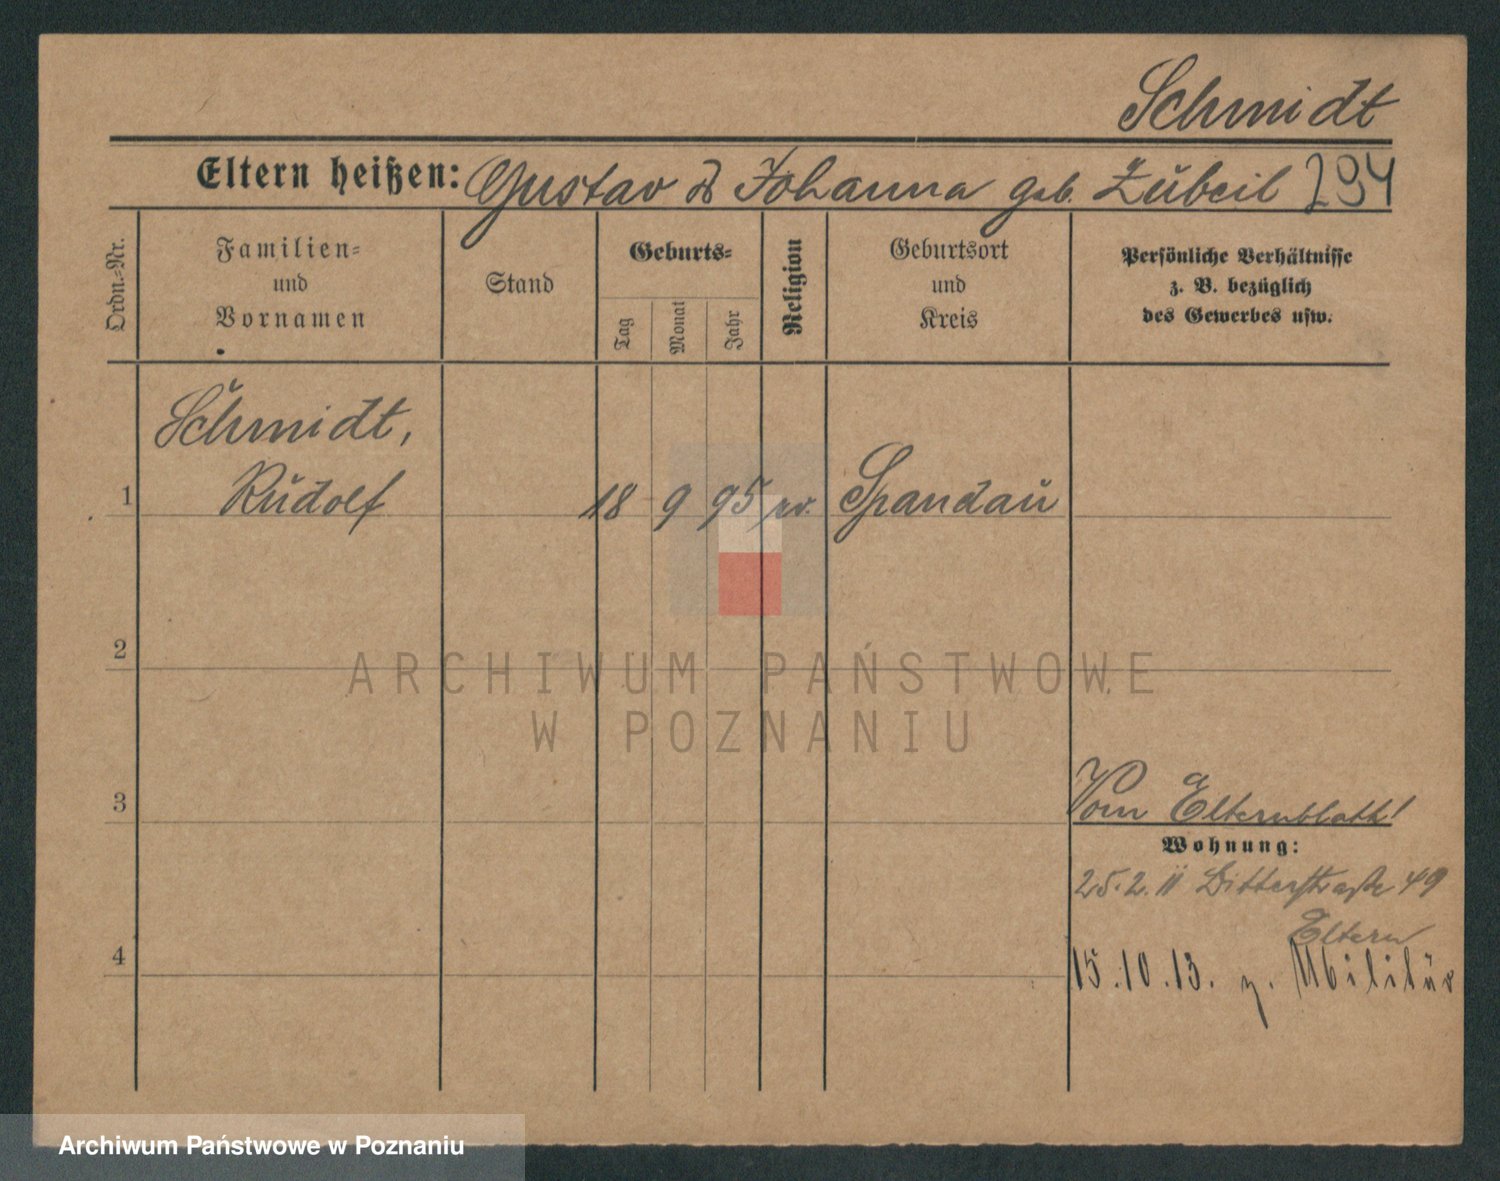 Schmidt
Eltern heißen: Gustav & Johanna geb. Zubeil 294
Ordn.-Nr.
Familien- und Vornamen
Stand
Geburts-
Tag
Monat
Jahr
Religion
Geburtsort
und
Kreis
Persönliche Verhältnisse
z. B. bezüglich
des Gewerbes usw.
Schmidt,
1 Rudolf 18 9 95 ev. Spandau
2
ARCHIWUM PAŃSTWOWE
W POZNANIU
3
Vom Elternblatt!
Wohnung:
25.2.11 Bitterstraße 49
Eltern
4
15.10.13. z. Militär
Archiwum Państwowe w Poznaniu